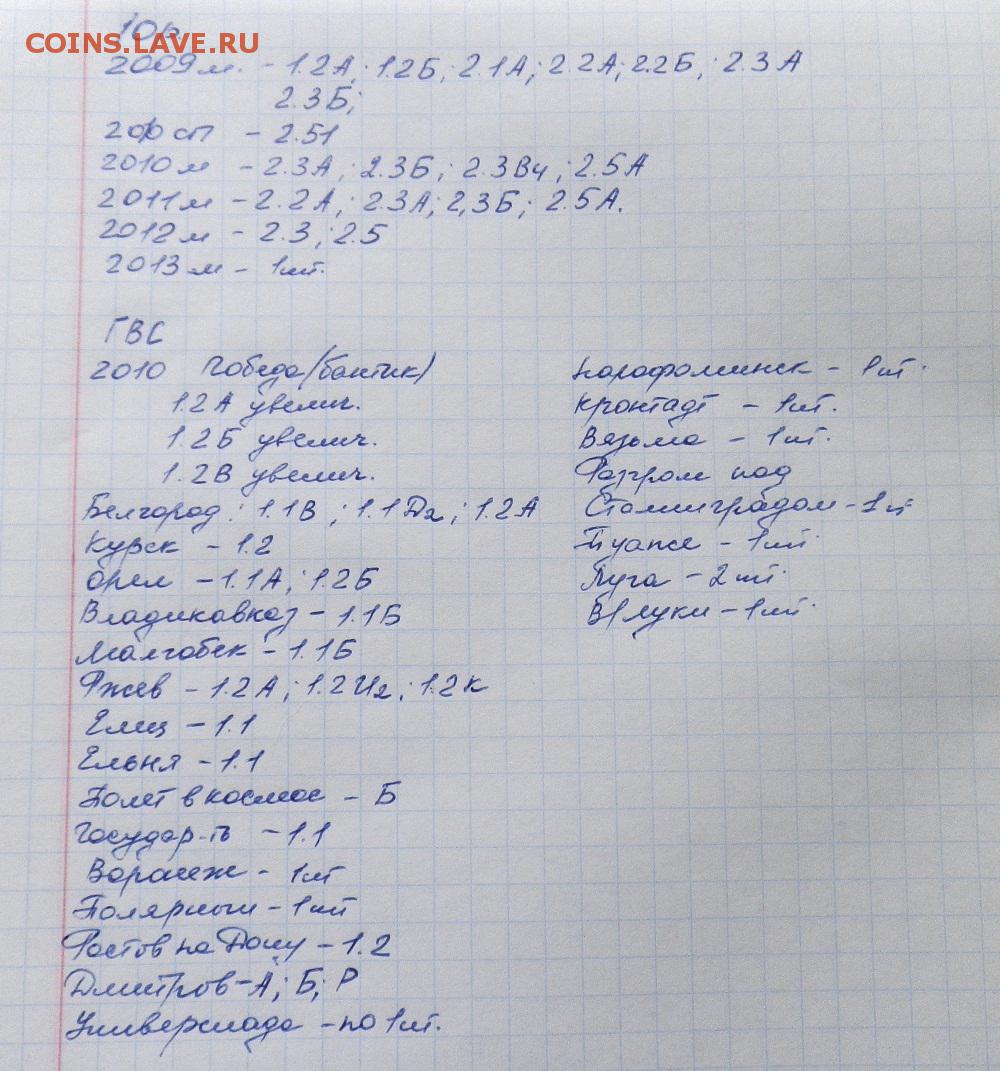 10р.
COINS.LAVE.RU
2009 м. - 1.2А; 1.2Б; 2.1А; 2.2А; 2.2Б; 2.3А
2.3Б;
сп - 2.51
2010 м - 2.3А; 2.3Б; 2.3Вч; 2.5А
2011 м - 2.2А; 2.3А; 2,3Б; 2.5А.
2012 м - 2.3; 2.5
2013 м - 1шт.
ГВС
2010 Победа (бантик)
1.2А увелич.
1.2Б увелич.
1.2В увелич.
Белгород: 1.1В; 1.1Д2; 1.2А
Курск - 1.2
Орел - 1.1А; 1.2Б
Владикавказ - 1.1Б
Малгобек - 1.1Б
Ржев - 1.2А; 1.2И2; 1.2К
Елец - 1.1
Ельня - 1.1
Полет в космос - Б
Государ-ть - 1.1
Воронеж - 1шт
Полярный - 1шт
Ростов на Дону - 1.2
Дмитров - А; Б; Р
Универсиада - по 1шт.
Нарофоминск - 1шт.
Кронтадт - 1шт.
Вязьма - 1шт.
Разгром под
Сталинградом - 1ш
Туапсе - 1шт.
Луга - 2шт.
В луки - 1шт.